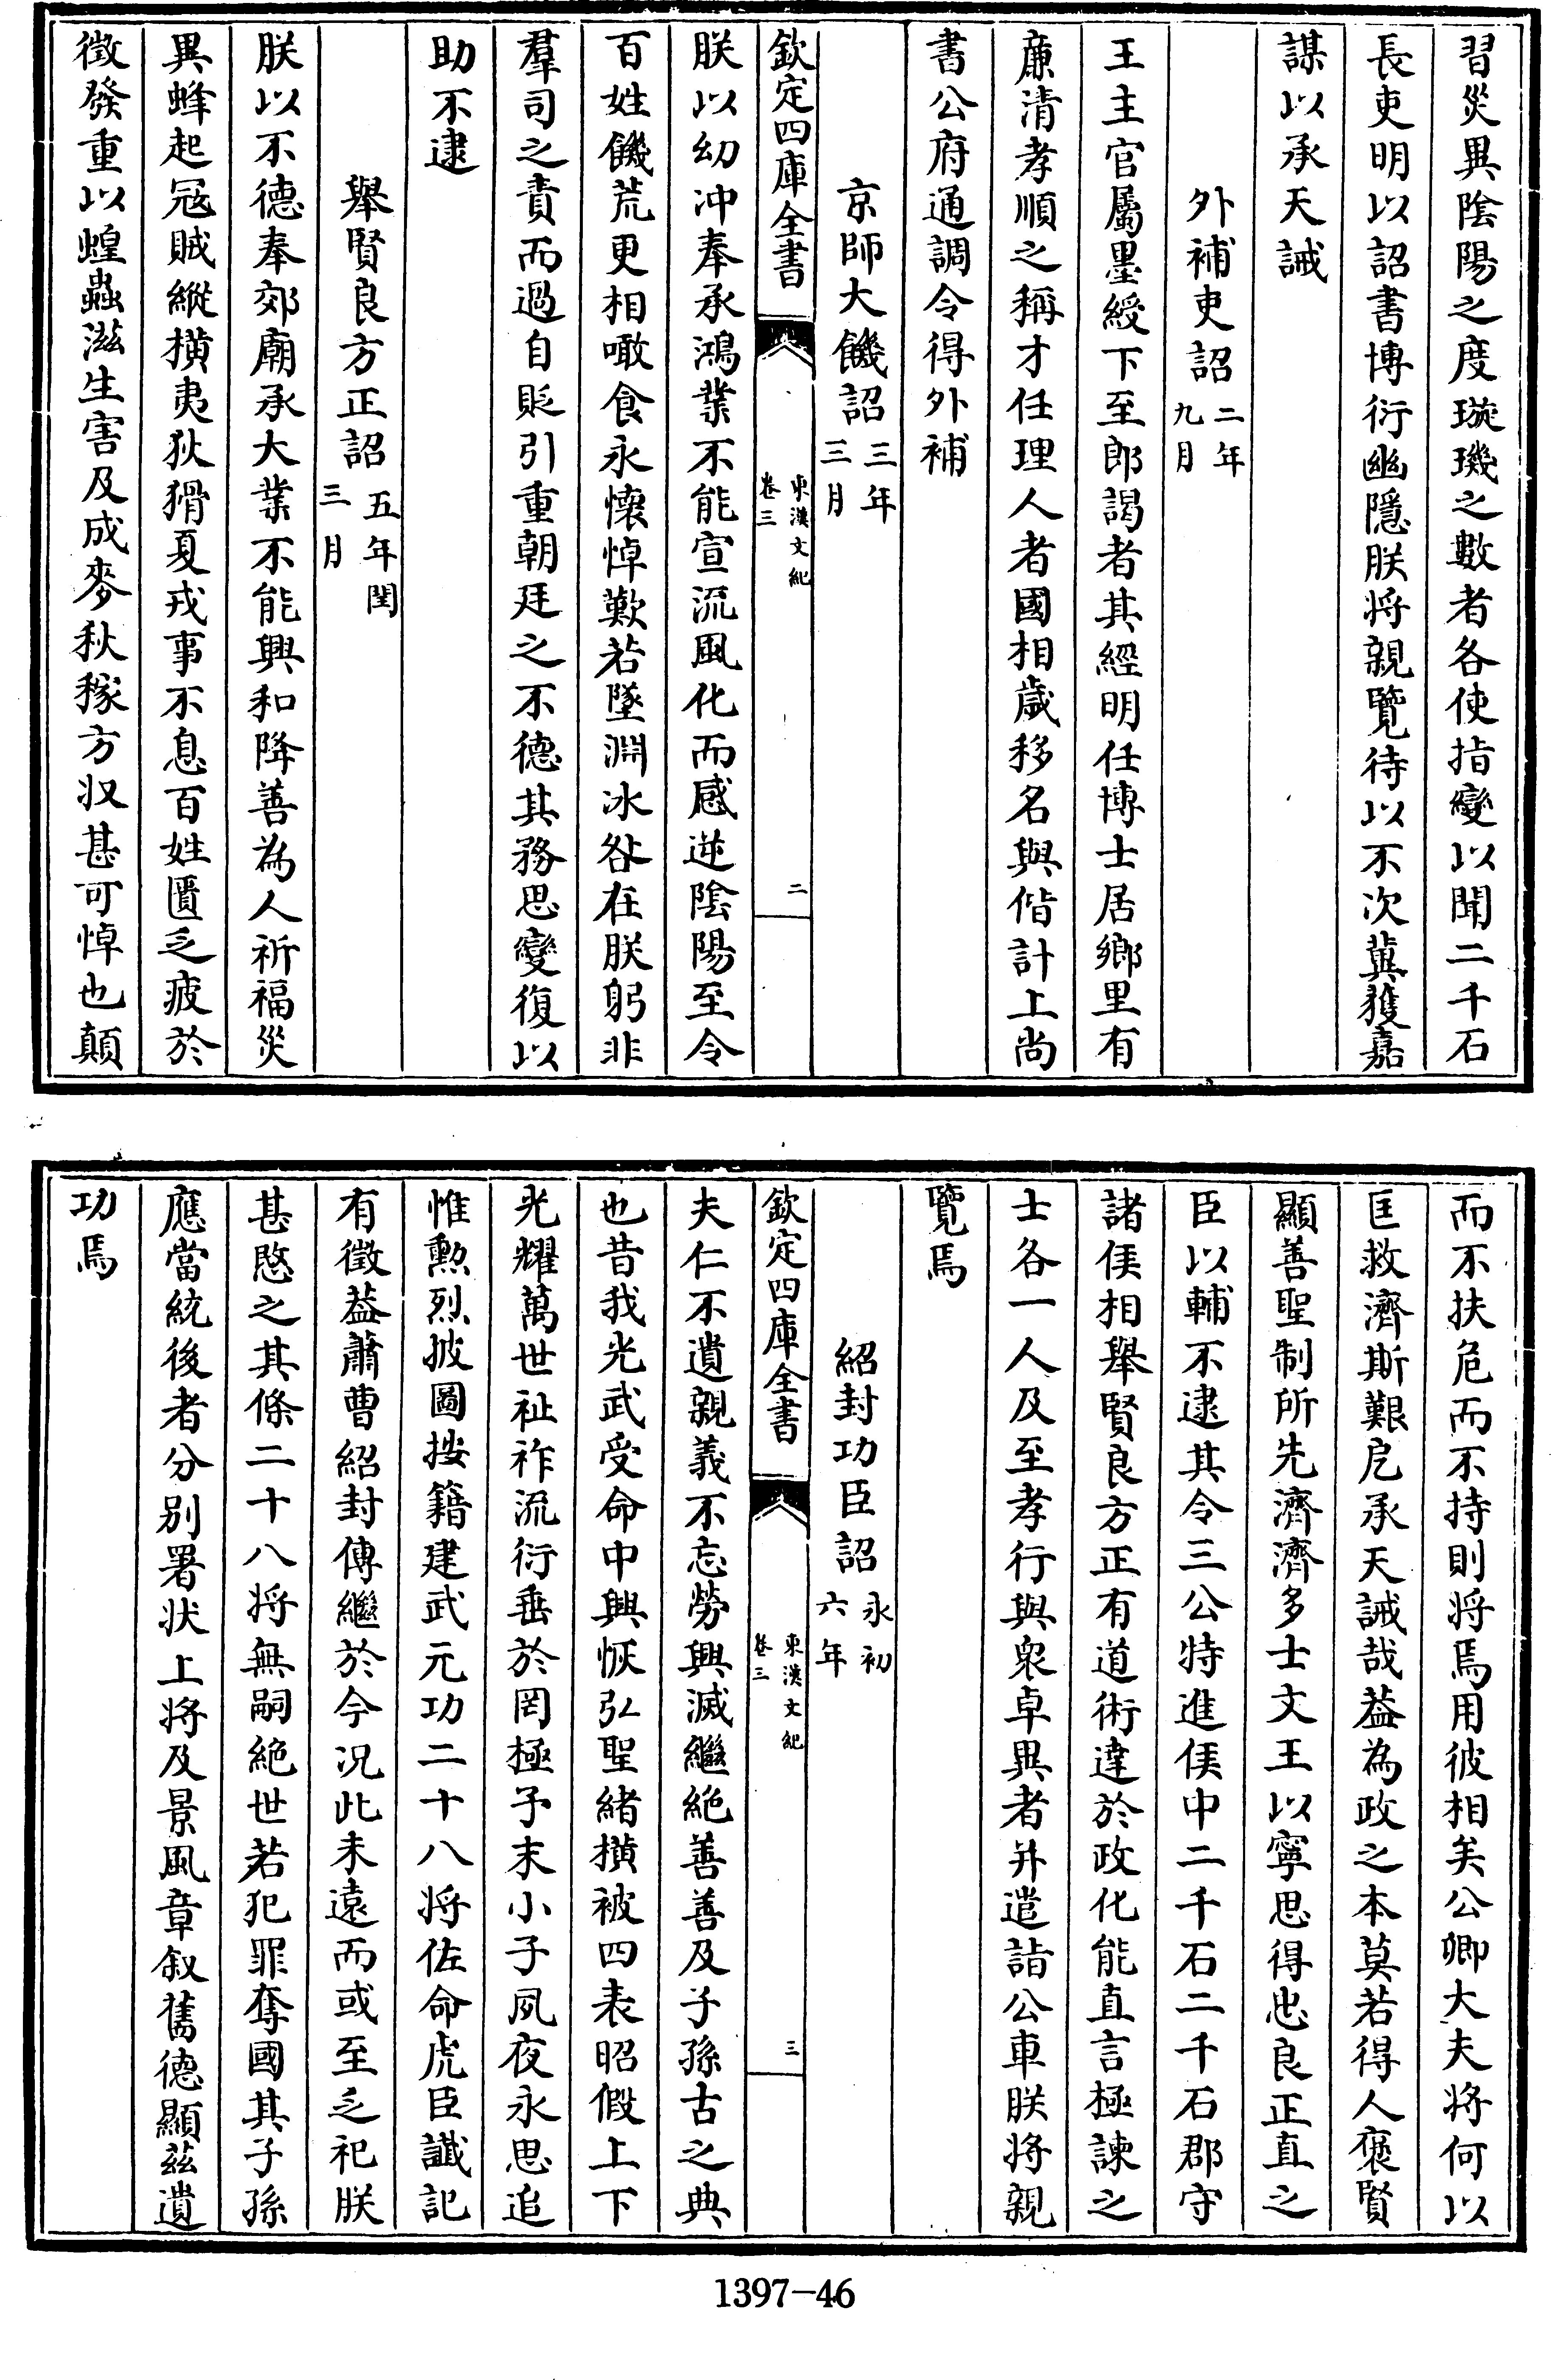 習災異陰陽之度璇璣之數者各使指變以聞二千石
長吏明以詔書博衍幽隱朕将親覽待以不次冀獲嘉
謀以承天誡
外補吏詔二年九月
王主官屬墨綬下至郎謁者其經明任博士居鄉里有
廉清孝順之稱才任理人者國相歲移名與偕計上尚
書公府通調令得外補
京師大饑詔三年三月
欽定四庫全書
東漢文紀
卷三
二
朕以幼冲奉承鴻業不能宣流風化而感逆陰陽至令
百姓饑荒更相噉食永懷悼歎若墜淵冰咎在朕躬非
羣司之責而過自貶引重朝廷之不德其務思變復以
助不逮
舉賢良方正詔五年閏三月
朕以不德奉郊廟承大業不能興和降善為人祈福災
異蜂起冦賊縱横夷狄猾夏戎事不息百姓匱乏疲於
徵發重以蝗蟲滋生害及成麥秋稼方收甚可悼也顛
而不扶危而不持則将焉用彼相矣公卿大夫将何以
匡救濟斯艱戹承天誡哉葢為政之本莫若得人褒賢
顯善聖制所先濟濟多士文王以寧思得忠良正直之
臣以輔不逮其令三公特進侯中二千石二千石郡守
諸侯相舉賢良方正有道術達於政化能直言極諫之
士各一人及至孝行與衆卓異者并遣詣公車朕将親
覽焉
紹封功臣詔永初六年
欽定四庫全書
東漢文紀
卷三
三
夫仁不遺親義不忘勞興滅繼絶善善及子孫古之典
也昔我光武受命中興恢弘聖緒横被四表昭假上下
光耀萬世祉祚流衍垂於罔極予末小子夙夜永思追
惟勲烈披圖按籍建武元功二十八将佐命虎臣讖記
有徵葢蕭曹紹封傳繼於今况此未遠而或至乏祀朕
甚愍之其條二十八将無嗣絶世若犯罪奪國其子孫
應當統後者分别署状上将及景風章叙舊德顯兹遺
功焉
1397—46